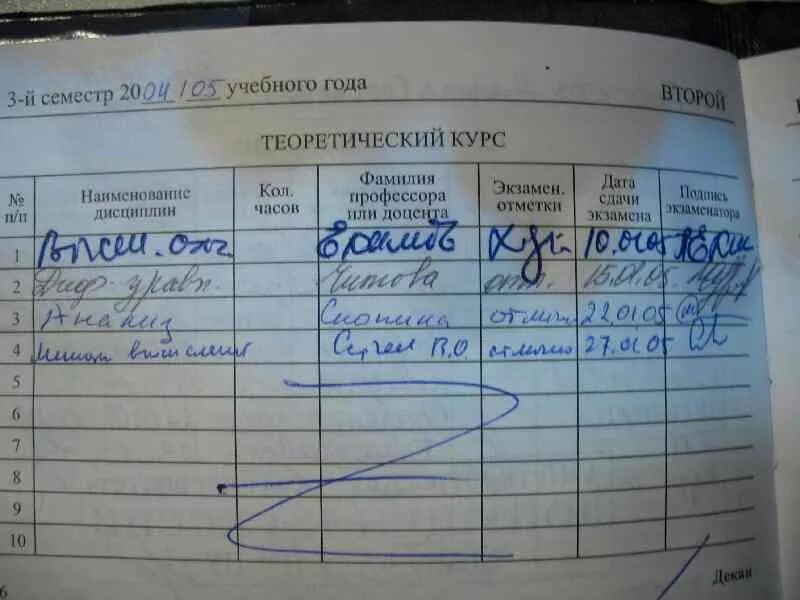 3-й семестр 2004/05 учебного года
ВТОРОЙ
ТЕОРЕТИЧЕСКИЙ КУРС
№ п/п Наименование дисциплин Кол. часов Фамилия профессора или доцента Экзамен. отметки Дата сдачи экзамена Подпись экзаменатора
1 10.01.05
2 Диф. уравн. Читова отл. 15.01.05
3 Анализ Скопина отлично 22.01.05
4 Методы вычисления В.О. отлично 27.01.05
5
6
7
8
9
10
Декан
6